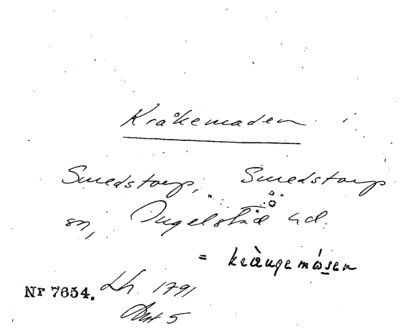 Kråkemaden
Smedstorp, Smedstorp
sn, Ingelstad hd.
= kràngemósen
Nr 7654. Lh. 1791
Akt 5